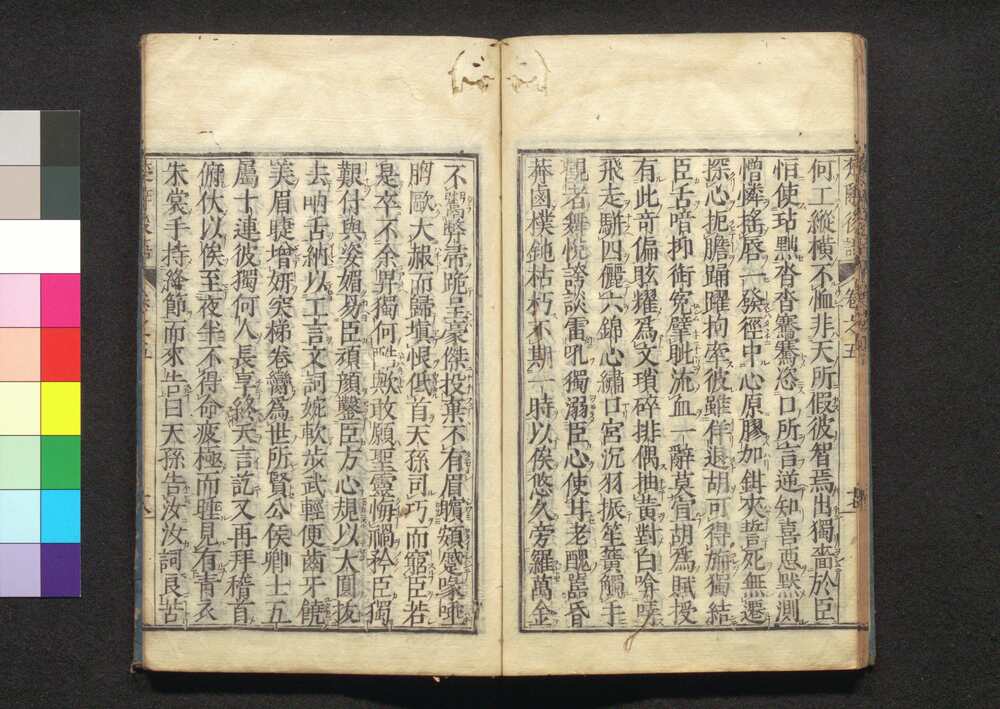 何工縱橫不恤非天所假彼智焉出獨嗇於臣
恒使玷黜沓沓騫騫恣口所言逆知喜惡默測
憎憐搖脣一發徑中心原膠加鉗夾誓死無遷
探心扼膽踊躍拘牽彼雖佯退胡可得旃獨結
臣舌喑抑銜寃擘眦流血一辭莫宣胡爲賦授
有此奇偏眩耀爲文瑣碎排偶抽黃對白啽哢
飛走駢四儷六錦心繡口宮沉羽振笙簧觸手
觀者舞悅誇談雷吼獨溺臣心使甘老醜嚚昏
莾鹵樸鈍枯朽不期一時以俟悠久旁羅萬金
不鬻弊帚跪呈豪傑投棄不有眉矉頞蹙喙唾
胷歐大赧而歸塡恨低首天孫司巧而窮臣若
是卒不余畀獨何酷歟敢願聖靈悔禍矜臣獨
艱付與姿媚易臣頑顔鑿臣方心規以大圓拔
去吶舌納以工言文詞婉軟步武輕便齒牙饒
美眉睫增妍突梯卷臠爲世所賢公侯卿士五
屬十連彼獨何人長享終天言訖又再拜稽首
俯伏以俟至夜半不得命疲極而睡見有青衣
朱裳手持絳節而來告曰天孫告汝汝詞良苦